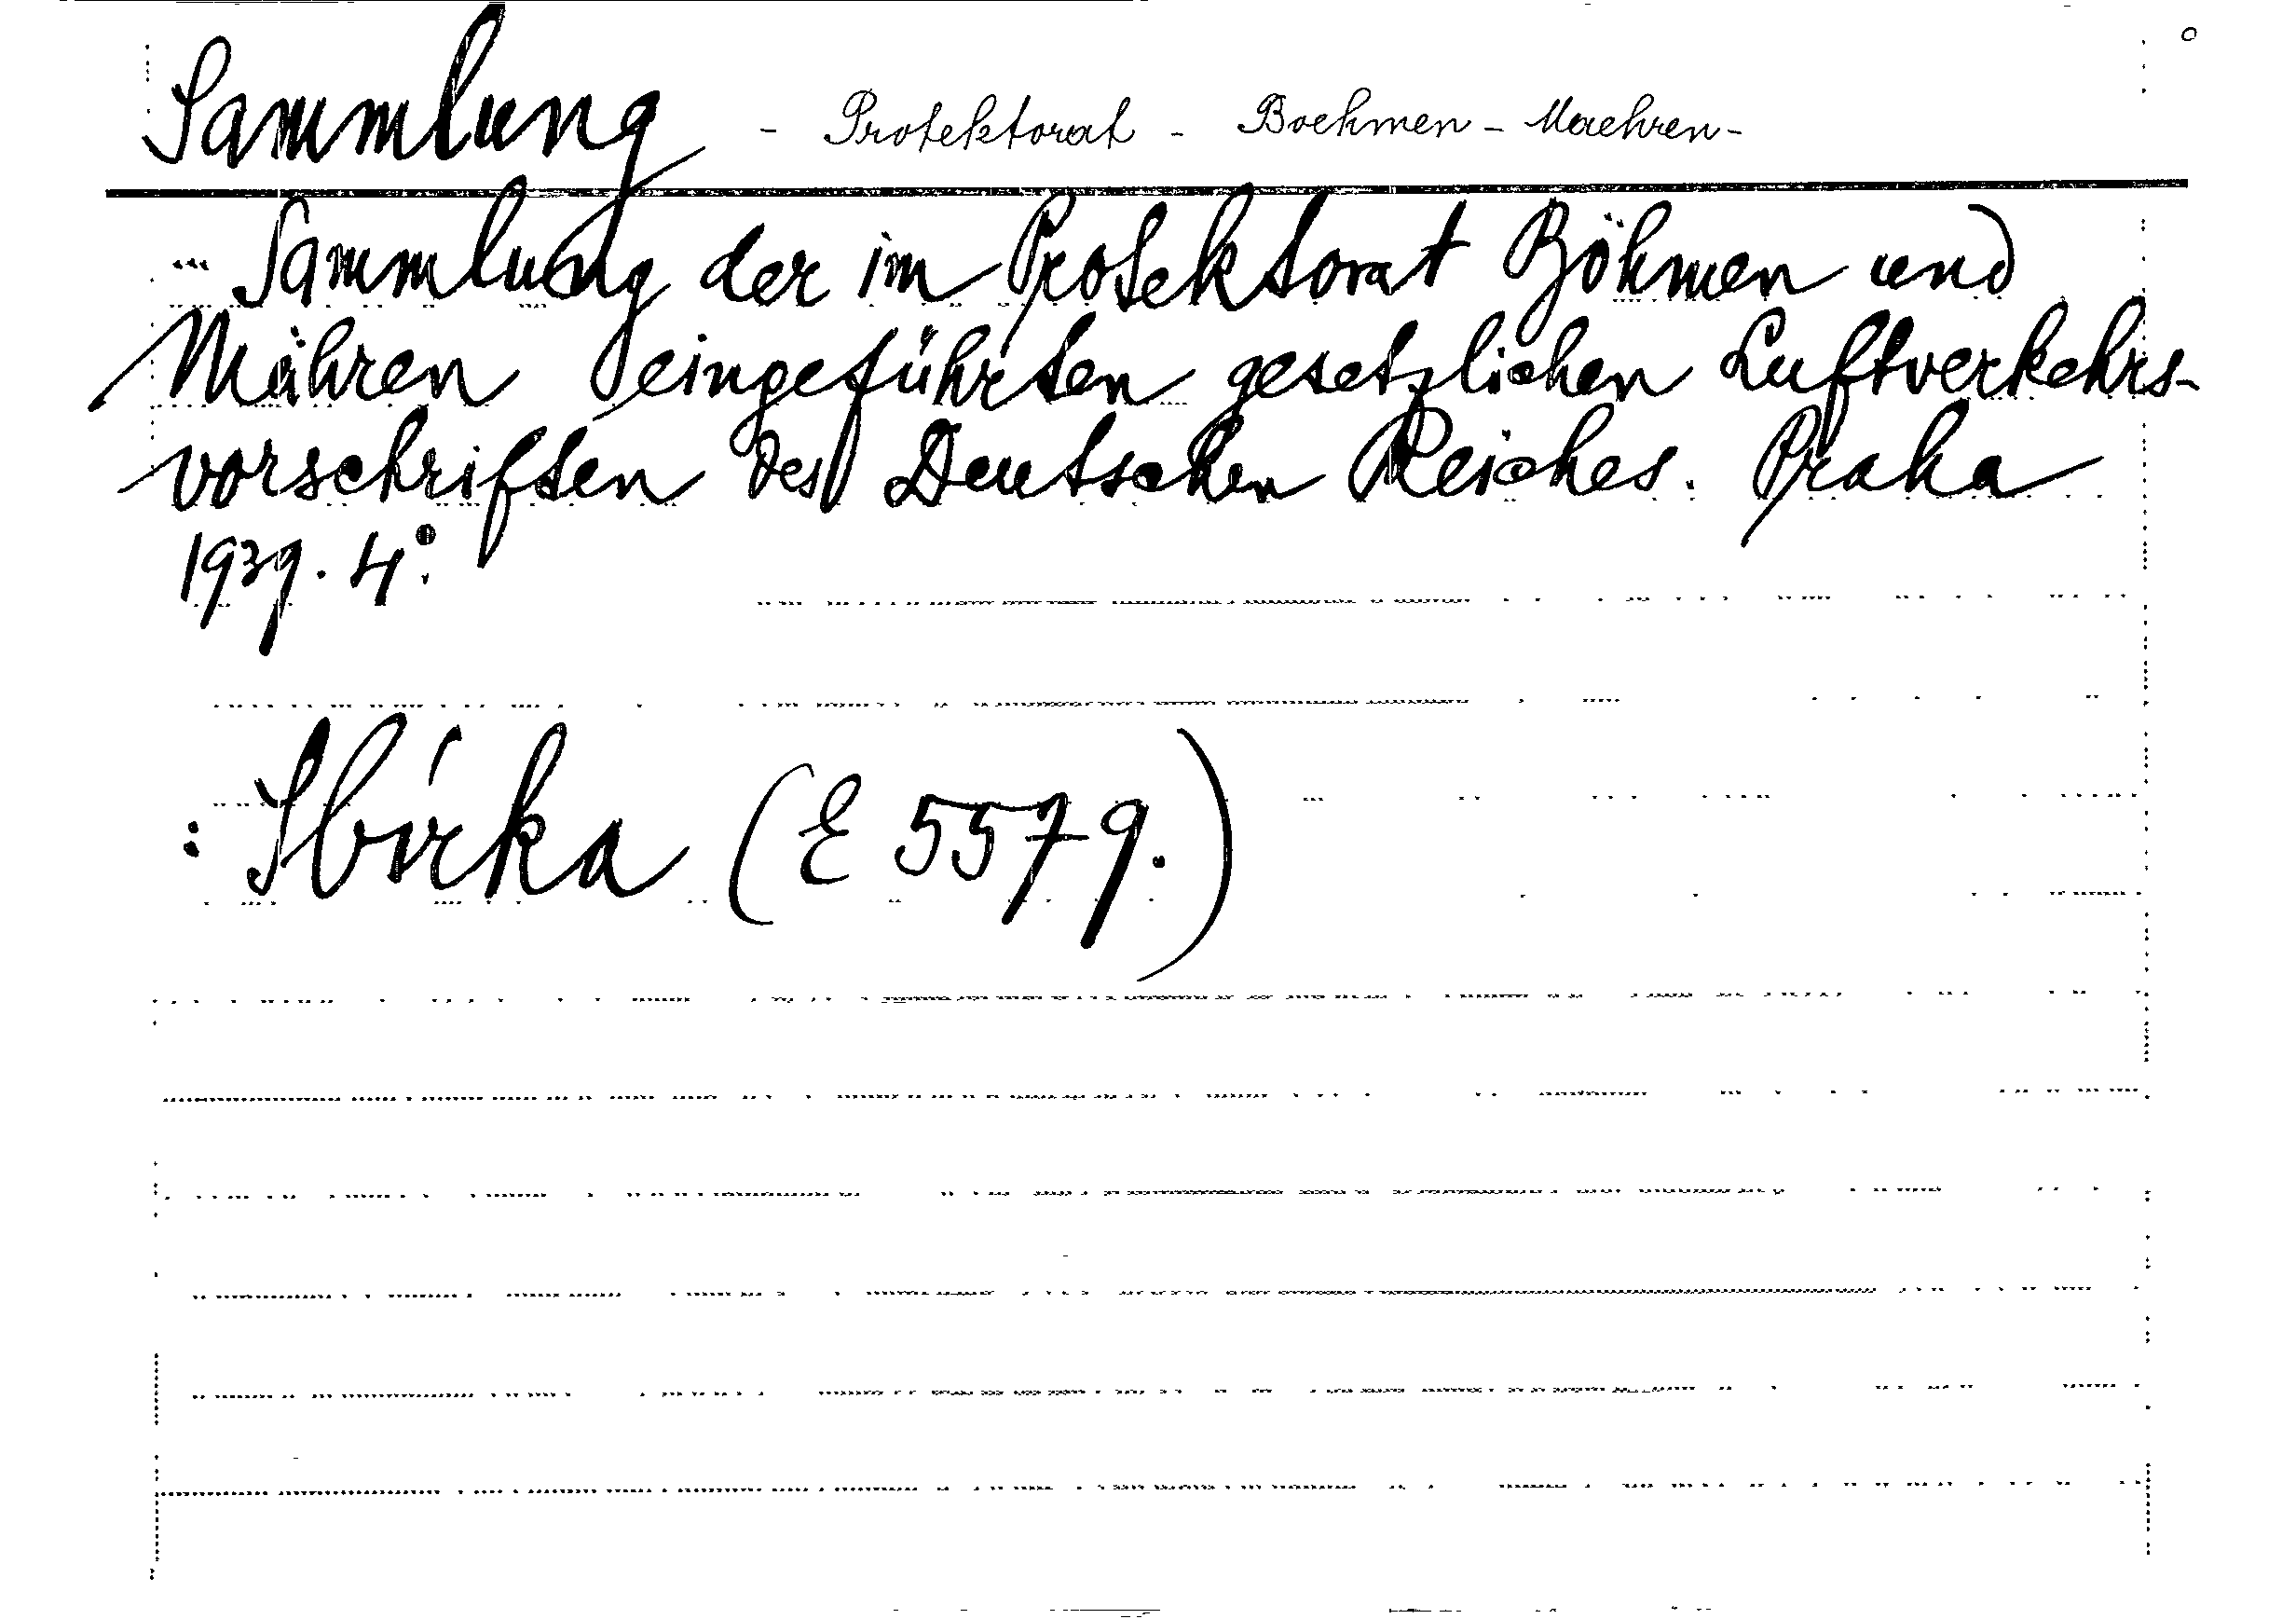 Sammlung - Protektorat - Boehmen - Maehren -
Sammlung der im Protektorat Böhmen und
Mähren eingeführten gesetzlichen Luftverkehrs-
vorschriften des Deutschen Reiches. Praha
1939. 4°.
: Sbírka (E 5579.)